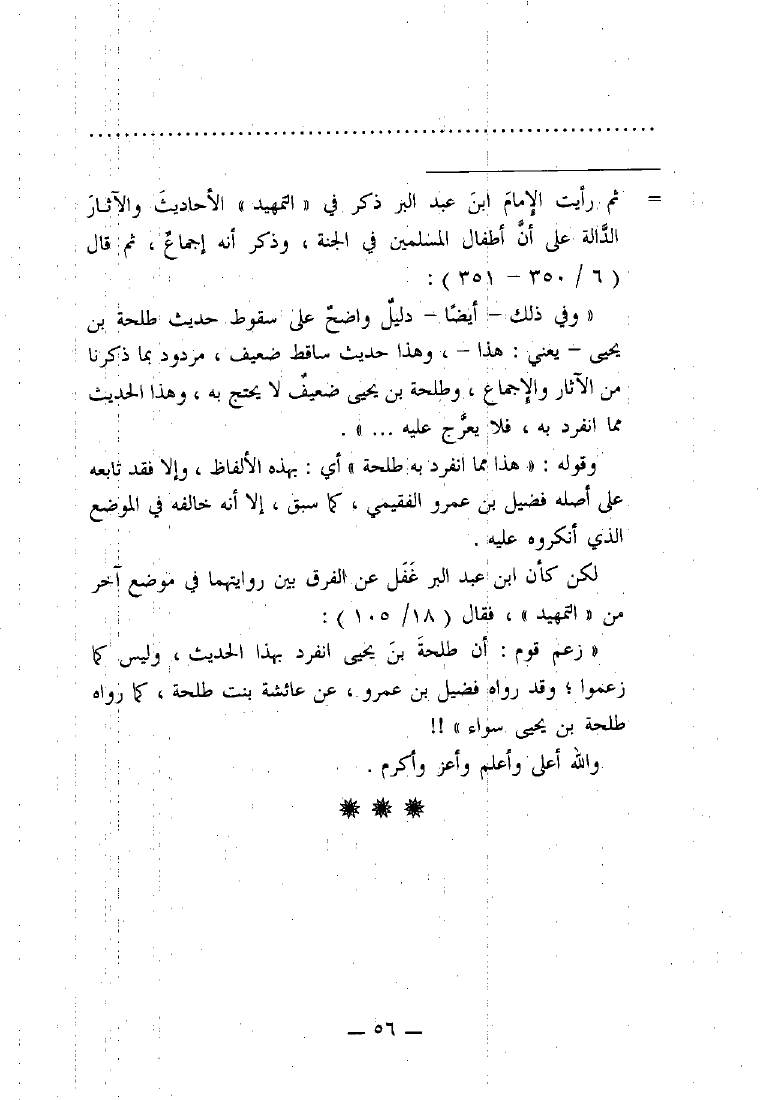 ................................................................
= ثم رأيت الإمامَ ابنَ عبد البر ذكر في « التمهيد » الأحاديثَ والآثارَ
الدَّالة على أنَّ أطفال المسلمين في الجنة ، وذكر أنه إجماعٌ ، ثم قال
( ٦ / ٣٥٠ – ٣٥١ ) :
« وفي ذلك – أيضًا – دليلٌ واضحٌ على سقوط حديث طلحة بن
يحيى – يعني : هذا – ، وهذا حديث ساقط ضعيف ، مردود بما ذكرنا
من الآثار والإجماع ، وطلحة بن يحيى ضعيفٌ لا يحتج به ، وهذا الحديث
مما انفرد به ، فلا يعرَّج عليه ... » .
وقوله : « هذا مما انفرد به طلحة » أي : بهذه الألفاظ ، وإلا فقد تابعه
على أصله فضيل بن عمرو الفقيمي ، كما سبق ، إلا أنه خالفه في الموضع
الذي أنكروه عليه .
لكن كأن ابن عبد البر غَفَل عن الفرق بين روايتهما في موضع آخر
من « التمهيد » ، فقال ( ١٨/ ١٠٥ ) :
« زعم قوم : أن طلحةَ بنَ يحيى انفرد بهذا الحديث ، وليس كما
زعموا ؛ وقد رواه فضيل بن عمرو ، عن عائشة بنت طلحة ، كما رواه
طلحة بن يحيى سواء » !!
والله أعلى وأعلم وأعز وأكرم .
— ٥٦ —